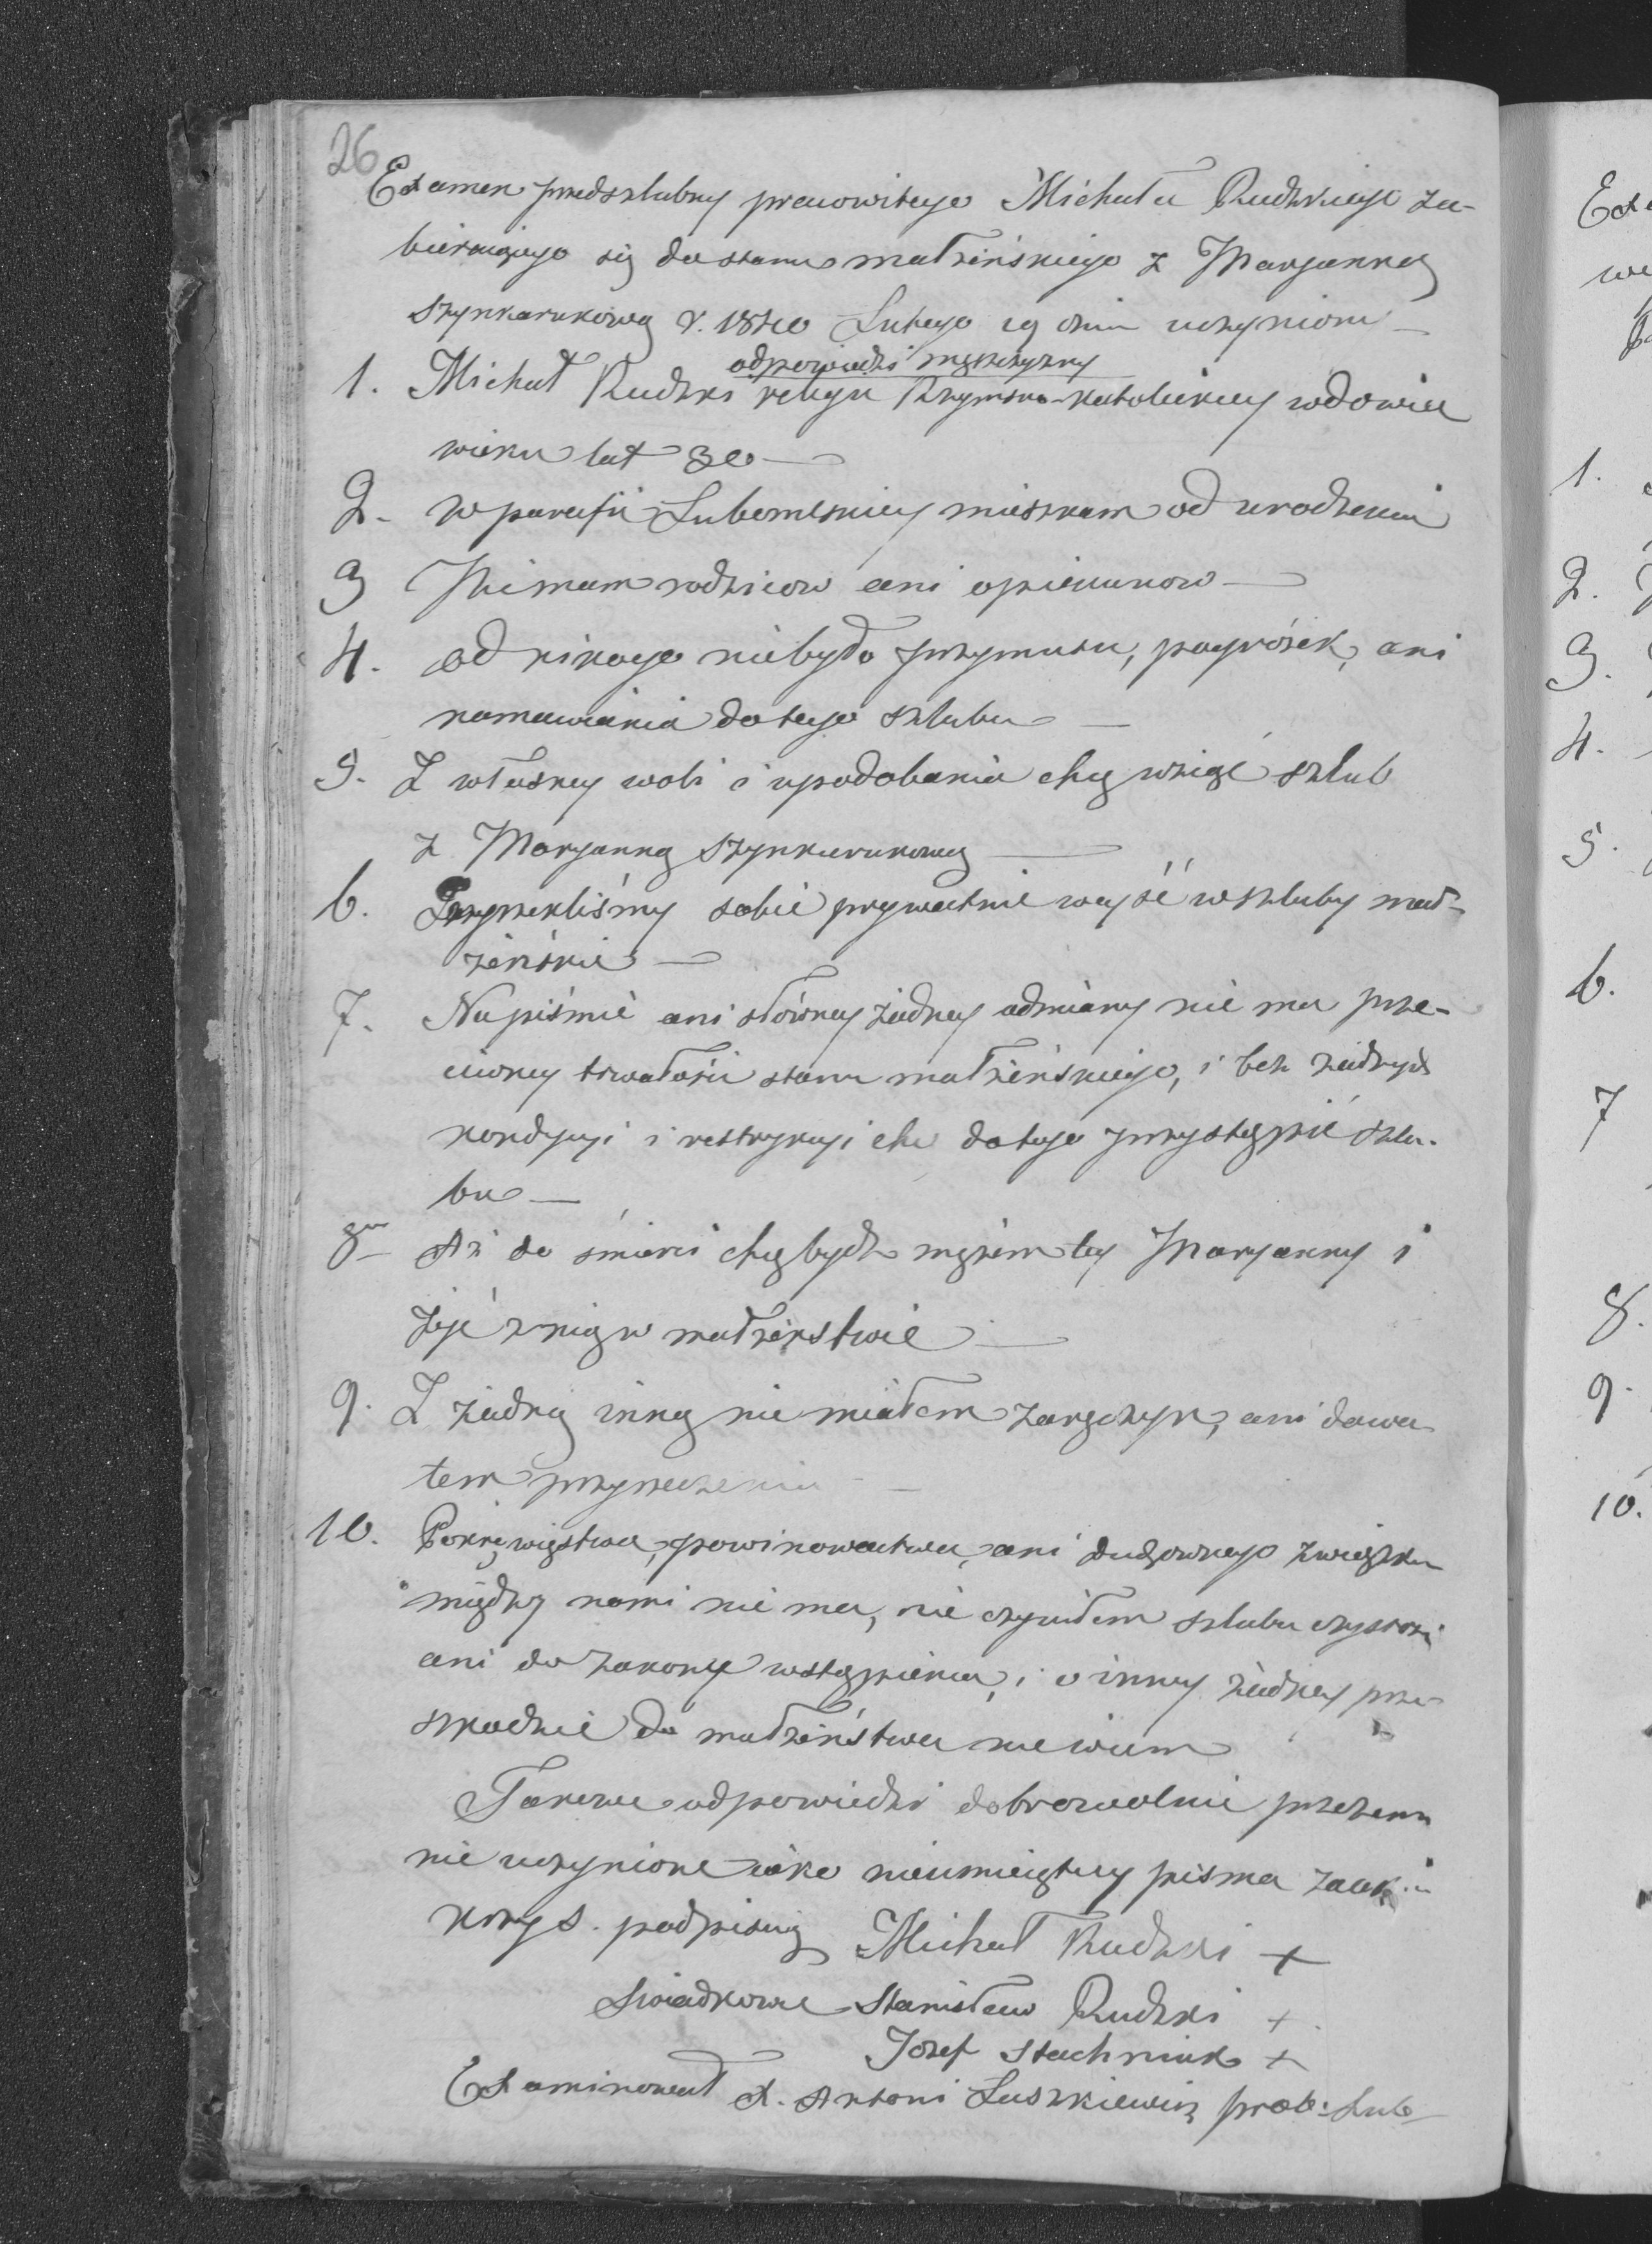 26
Examen przedszlubny pracowitego Michała Rudzkiego za-
bieraiącego się do stanu małżeńskiego z Maryanną
Szynkarukową r. 1840 Lutego 19 dnia uczyniony
odpowiedzi mężczyzny
1. Michał Rudzki religii Rzymsko-katolickiey wdowiec
wieku lat 30
2. w parafii Lubomlskiey mieszkam od urodzenia
3 Nimam rodzicow ani opiekunow
4. od nikogo niebyło przymusu, pogróżek, ani
namawiania do tego szlubu
5. Z własney woli i upodobania chcę wziąć szlub
z Maryanną Szynkarukową
6. Przyrzekliśmy sobie prywatnie wejść w szluby mał-
żeńskie
7. Na piśmie ani słówney żadney odmiany nie ma prze-
ciwney trwałości stanu małżeńskiego, i bez żadnych
kondycyi i restrykcyi chce do tego przystąpić szlu-
bu
8m Aż do śmierci chcę bydź mężem tey Maryanny i
żyć z nią w małżeństwie
9. Z żadną inną nie miałem zaręczyn, ani dawa
łem przyrzeczenia
10. Pokrewięstwa, powinowactwa, ani duchownego związku
między nami nie ma, nie czyniłem szlubu czystości
ani do zakonu wstąpienia, i o inney żadney prze-
szkodzie do małżeństwa nie wiem
Takowe odpowiedzi dobrowolnie przezem
nie uczynione iako nieumieiętny pisma znak
krzyż. podpisuię Michał Rudzki +
Swiadkowie Stanisław Rudzki +
Jozef Stachniuk +
Examinował X. Antoni Luszkiewicz prob: Lub
Exa
we
1.
2.
3.
4.
5.
6.
7
8.
9.
10.